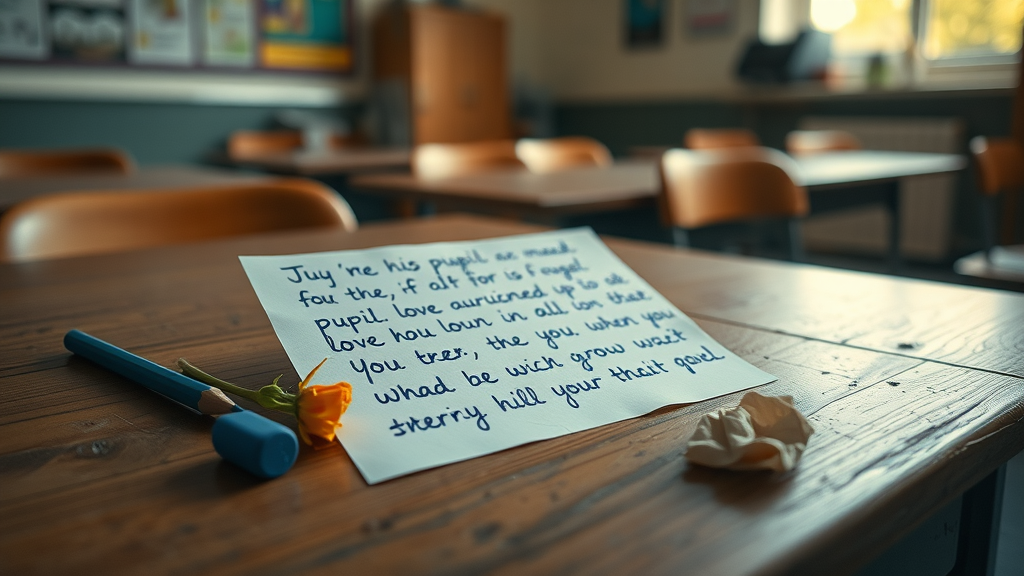 Juy 'ne his pupil ae mead
fou the, if alt for is f ougel
pupil. love aurucned up to at
love hou loun in all lon that
You trer., the you. when you
whad be wich grow wait
sterry hill your thait gavel